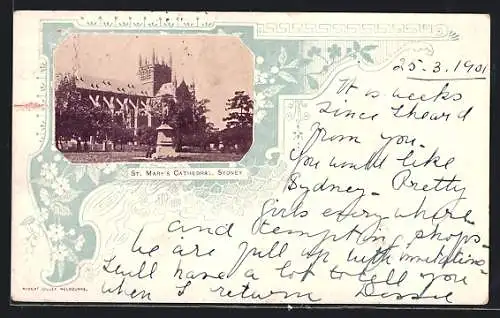 25-3.1901
It is weeks
since I heard
from you.
You would like
Sydney - Pretty
girls everywhere
and tempting shops -
We are full up with invitations
I will have a lot to tell you
when I return
ST. MARY'S CATHEDRAL, SYDNEY
MELBOURNE.